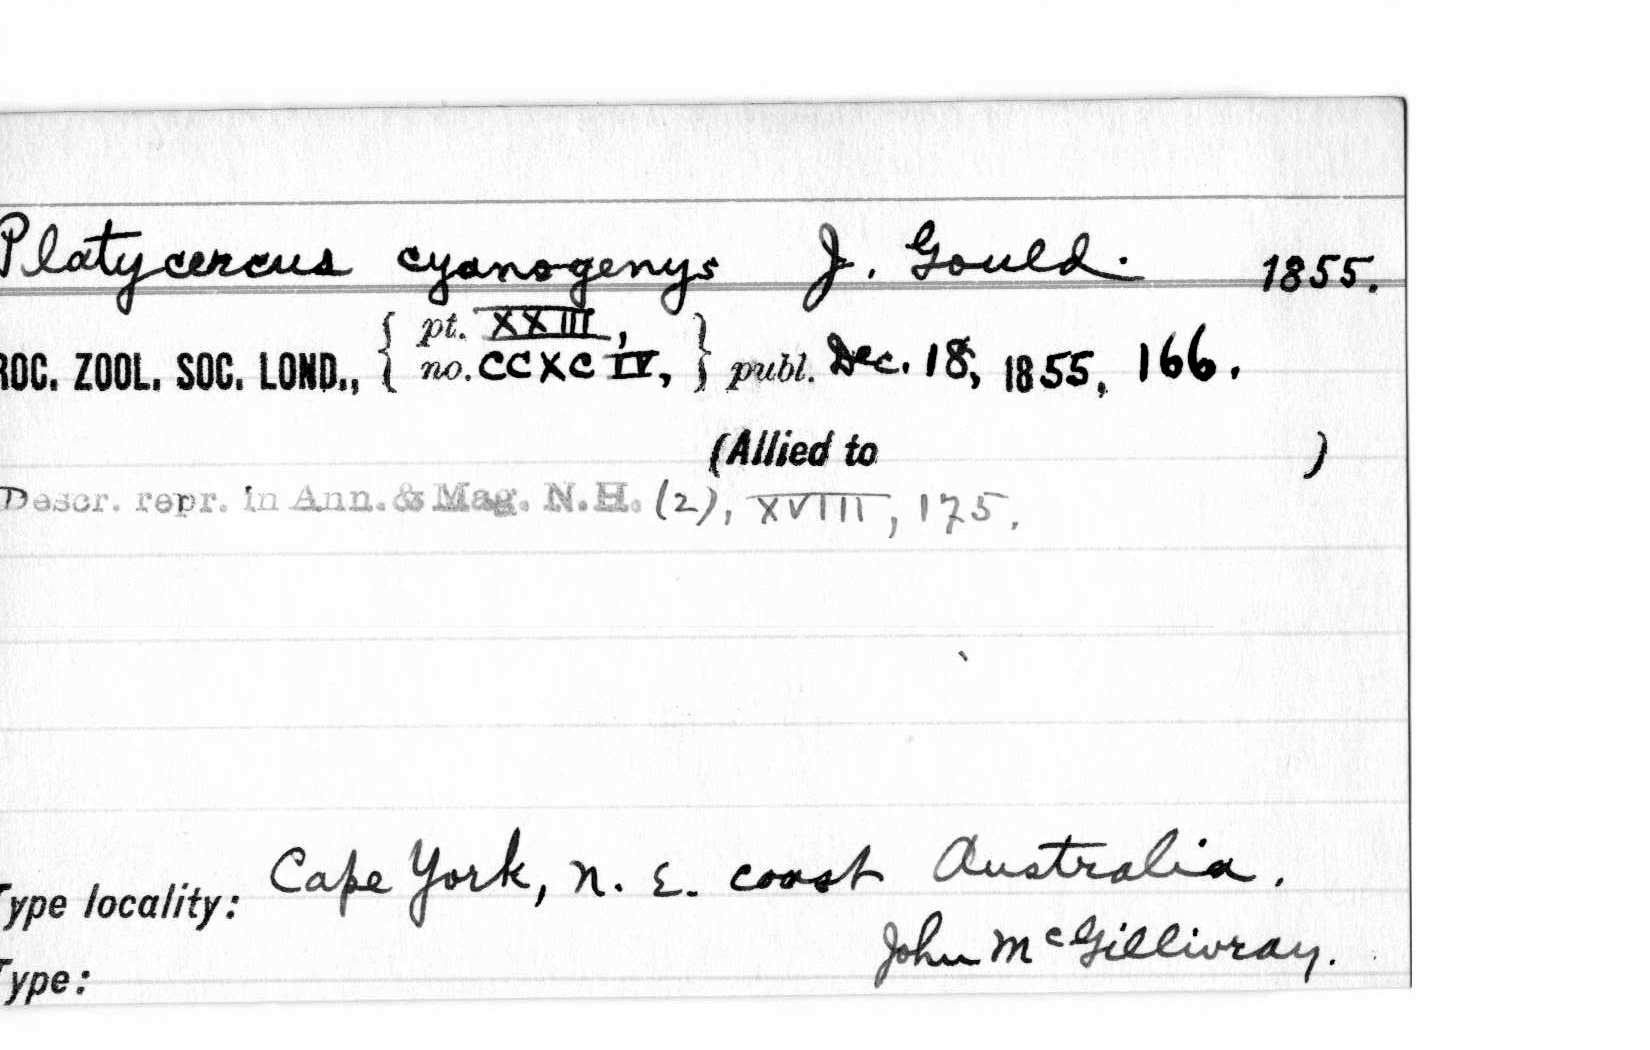 Platycercus cyanogenys J. Gould. 1855.
ROC. ZOOL. SOC. LOND., { pt. XXIII, no. CCXCIV, } publ. Dec. 18, 1855, 166.
(Allied to )
Descr. repr. in Ann. & Mag. N.H. (2), XVIII, 175.
Type locality: Cape York, N. E. coast Australia.
John McGillivray.
Type: